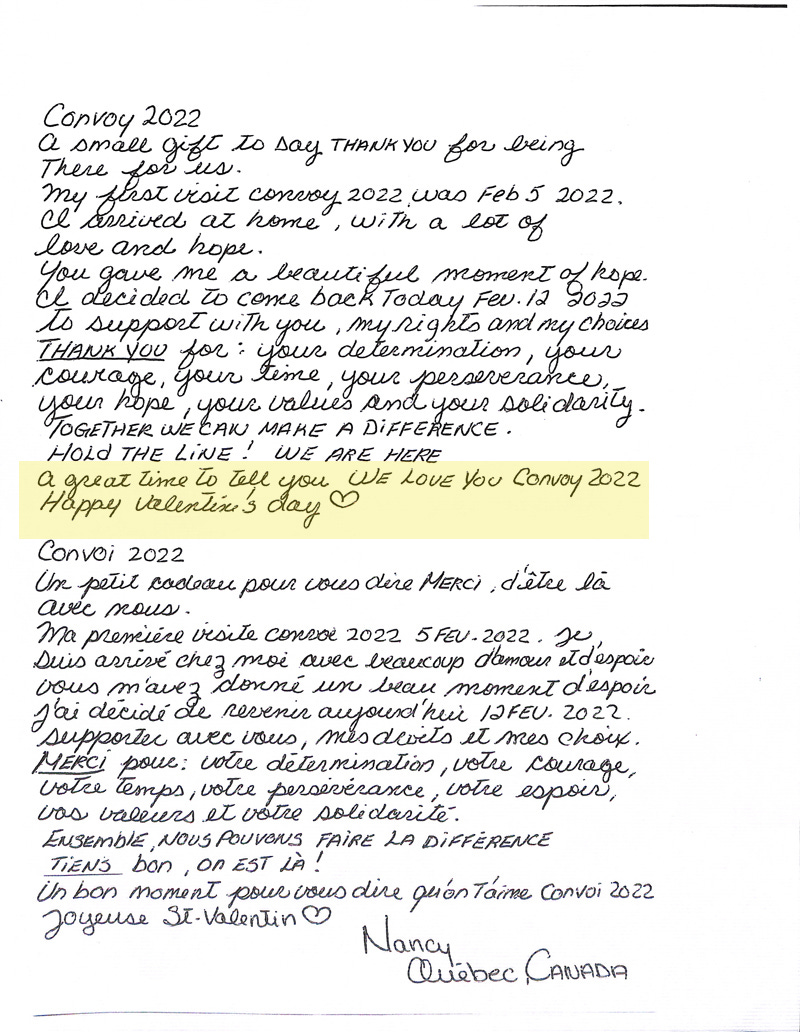 Convoy 2022
A small gift to say THANK YOU for being
There for us.
My first visit convoy 2022 was Feb 5 2022.
I arrived at home, with a lot of
love and hope.
You gave me a beautiful moment of hope.
I decided to come back Today Fev. 12 2022
to support with you, my rights and my choices
THANK YOU for: your determination, your
courage, your time, your perseverance,
your hope, your values and your solidarity.
TOGETHER WE CAN MAKE A DIFFERENCE.
HOLD THE LINE! WE ARE HERE
A great time to tell you WE LOVE YOU Convoy 2022
Happy Valentine's day ♡
Convoi 2022
Un petit cadeau pour vous dire MERCI, d'être là
avec nous.
Ma première visite convoi 2022 5 FEV. 2022. Je,
suis arrivé chez moi avec beaucoup d'amour et d'espoir
vous m'avez donné un beau moment d'espoir
J'ai décidé de revenir aujourd'hui 12 FEV. 2022.
supporter avec vous, mes droits et mes choix.
MERCI pour: votre détermination, votre courage,
votre temps, votre persévérance, votre espoir,
vos valeurs et votre solidarité.
ENSEMBLE, NOUS POUVONS FAIRE LA DIFFÉRENCE
TIENS bon, ON EST LÀ!
Un bon moment pour vous dire qu'on T'aime Convoi 2022
Joyeuse St-Valentin ♡
Nancy
Québec, CANADA